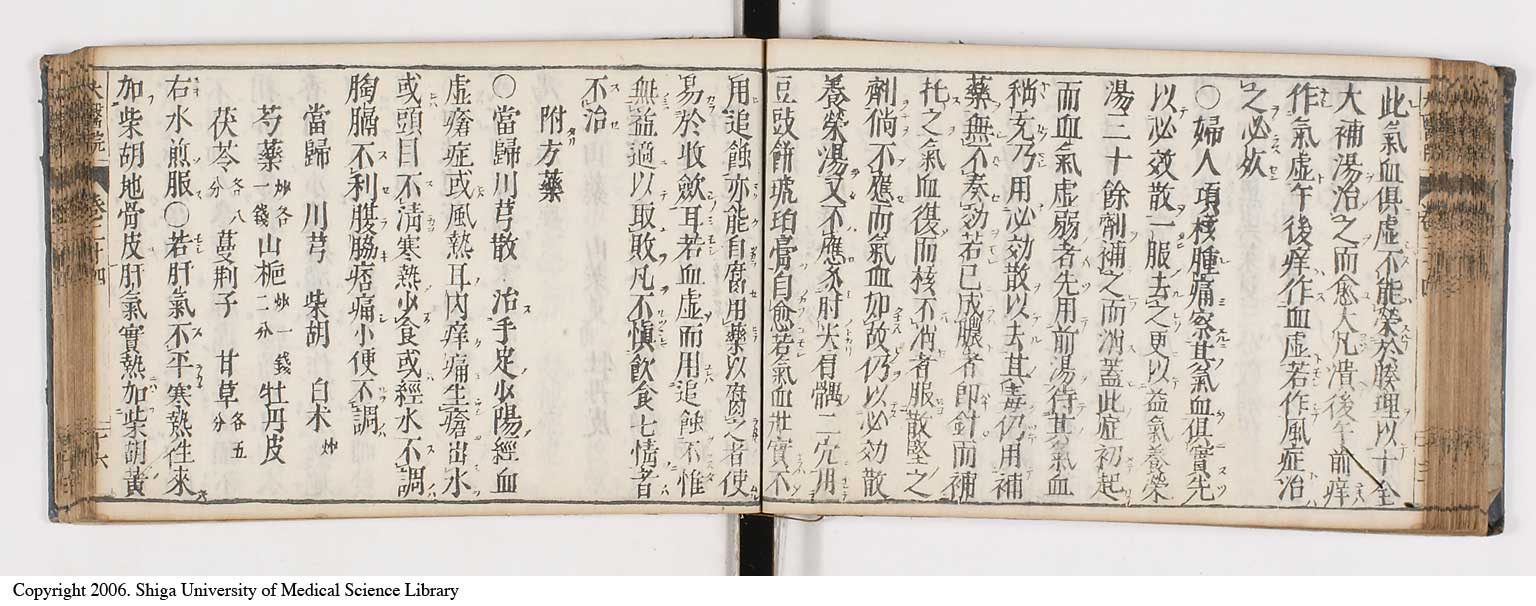 此氣血俱虛不能榮於腠理以十全
大補湯治之而愈大凡潰後午前痒
作氣虛午後痒作血虛若作風症治
之必妖
○婦人項核腫痛察其氣血俱實先
以必效散一服去之更以益氣養榮
湯二十餘劑補之而消蓋此症初起
而血氣虛弱者先用前湯待其氣血
稍充乃用必効散以去其毒仍用補
藥無不奏効若已成膿者即針而補
托之氣血復而核不消者服散堅之
劑倘不應而氣血如故仍以必効散
養榮湯又不應灸肘尖肩髃二穴用
豆豉餅琥珀膏自愈若氣血壯實不
用追蝕亦能自腐用藥以腐之者使
易於收歛耳若血虛而用追蝕不惟
無益適以取敗凡不慎飲食七情者
不治
附方藥
○當歸川芎散 治手足少陽經血
虛瘡症或風熱耳內痒痛生瘡出水
或頭目不清寒熱少食或經水不調
胸膈不利腹脇痞痛小便不調
當歸 川芎 柴胡 白朮炒
芍藥炒各一錢山梔炒一錢二分 牡丹皮
茯苓各八分 蔓荆子 甘草各五分
右水煎服○若肝氣不平寒熱往來
加柴胡地骨皮肝氣實熱加柴胡黃
卷二十四
十六
Copyright 2006. Shiga University of Medical Science Library